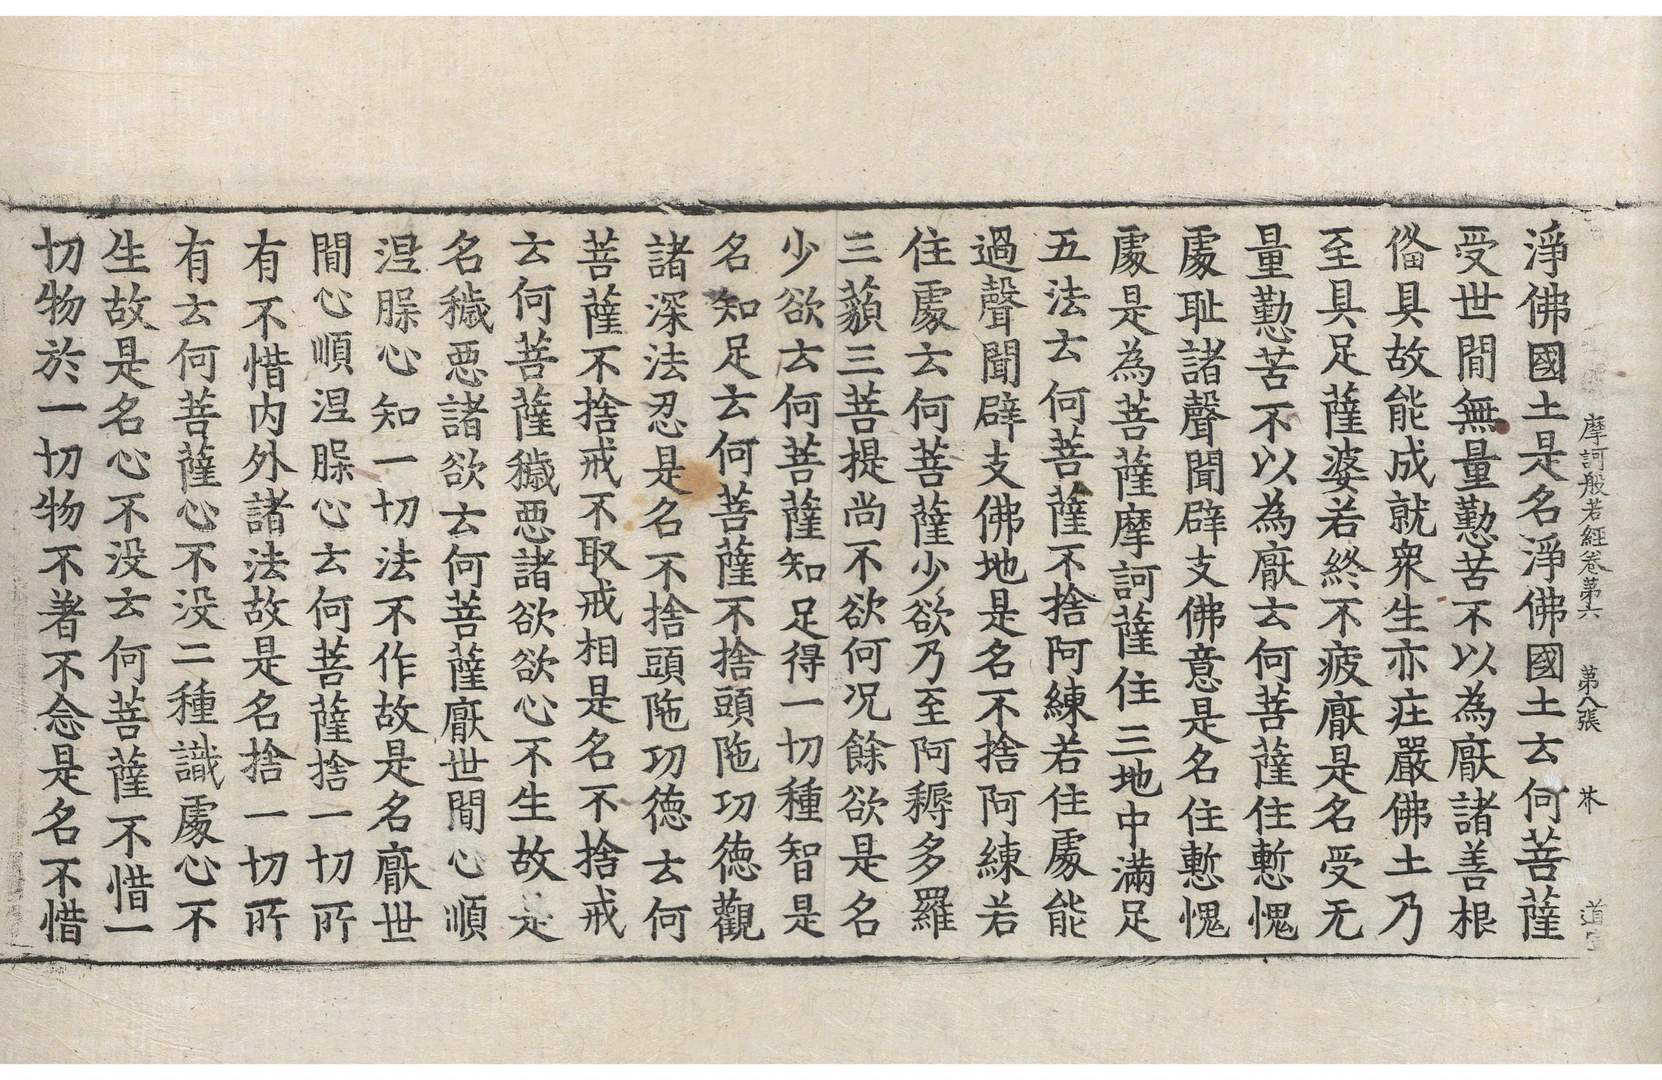 摩訶般若經卷第六 第八張 芥 道
淨佛國土是名淨佛國土云何菩薩
受世閒無量懃苦不以為厭諸善根
俻具故能成就衆生亦莊嚴佛土乃
至具足薩婆若終不疲厭是名受无
量懃苦不以為厭云何菩薩住慙愧
處恥諸聲聞辟支佛意是名住慙愧
處是為菩薩摩訶薩住三地中滿足
五法云何菩薩不捨阿練若住處能
過聲聞辟支佛地是名不捨阿練若
住處云何菩薩少欲乃至阿耨多羅
三藐三菩提尚不欲何況餘欲是名
少欲云何菩薩知足得一切種智是
名知足云何菩薩不捨頭陁功德觀
諸深法忍是名不捨頭陁功德云何
菩薩不捨戒不取戒相是名不捨戒
云何菩薩穢惡諸欲欲心不生故是
名穢惡諸欲云何菩薩厭世閒心順
涅槃心知一切法不作故是名厭世
閒心順涅槃心云何菩薩捨一切所
有不惜內外諸法故是名捨一切所
有云何菩薩心不没二種識處心不
生故是名心不没云何菩薩不惜一
切物於一切物不著不念是名不惜